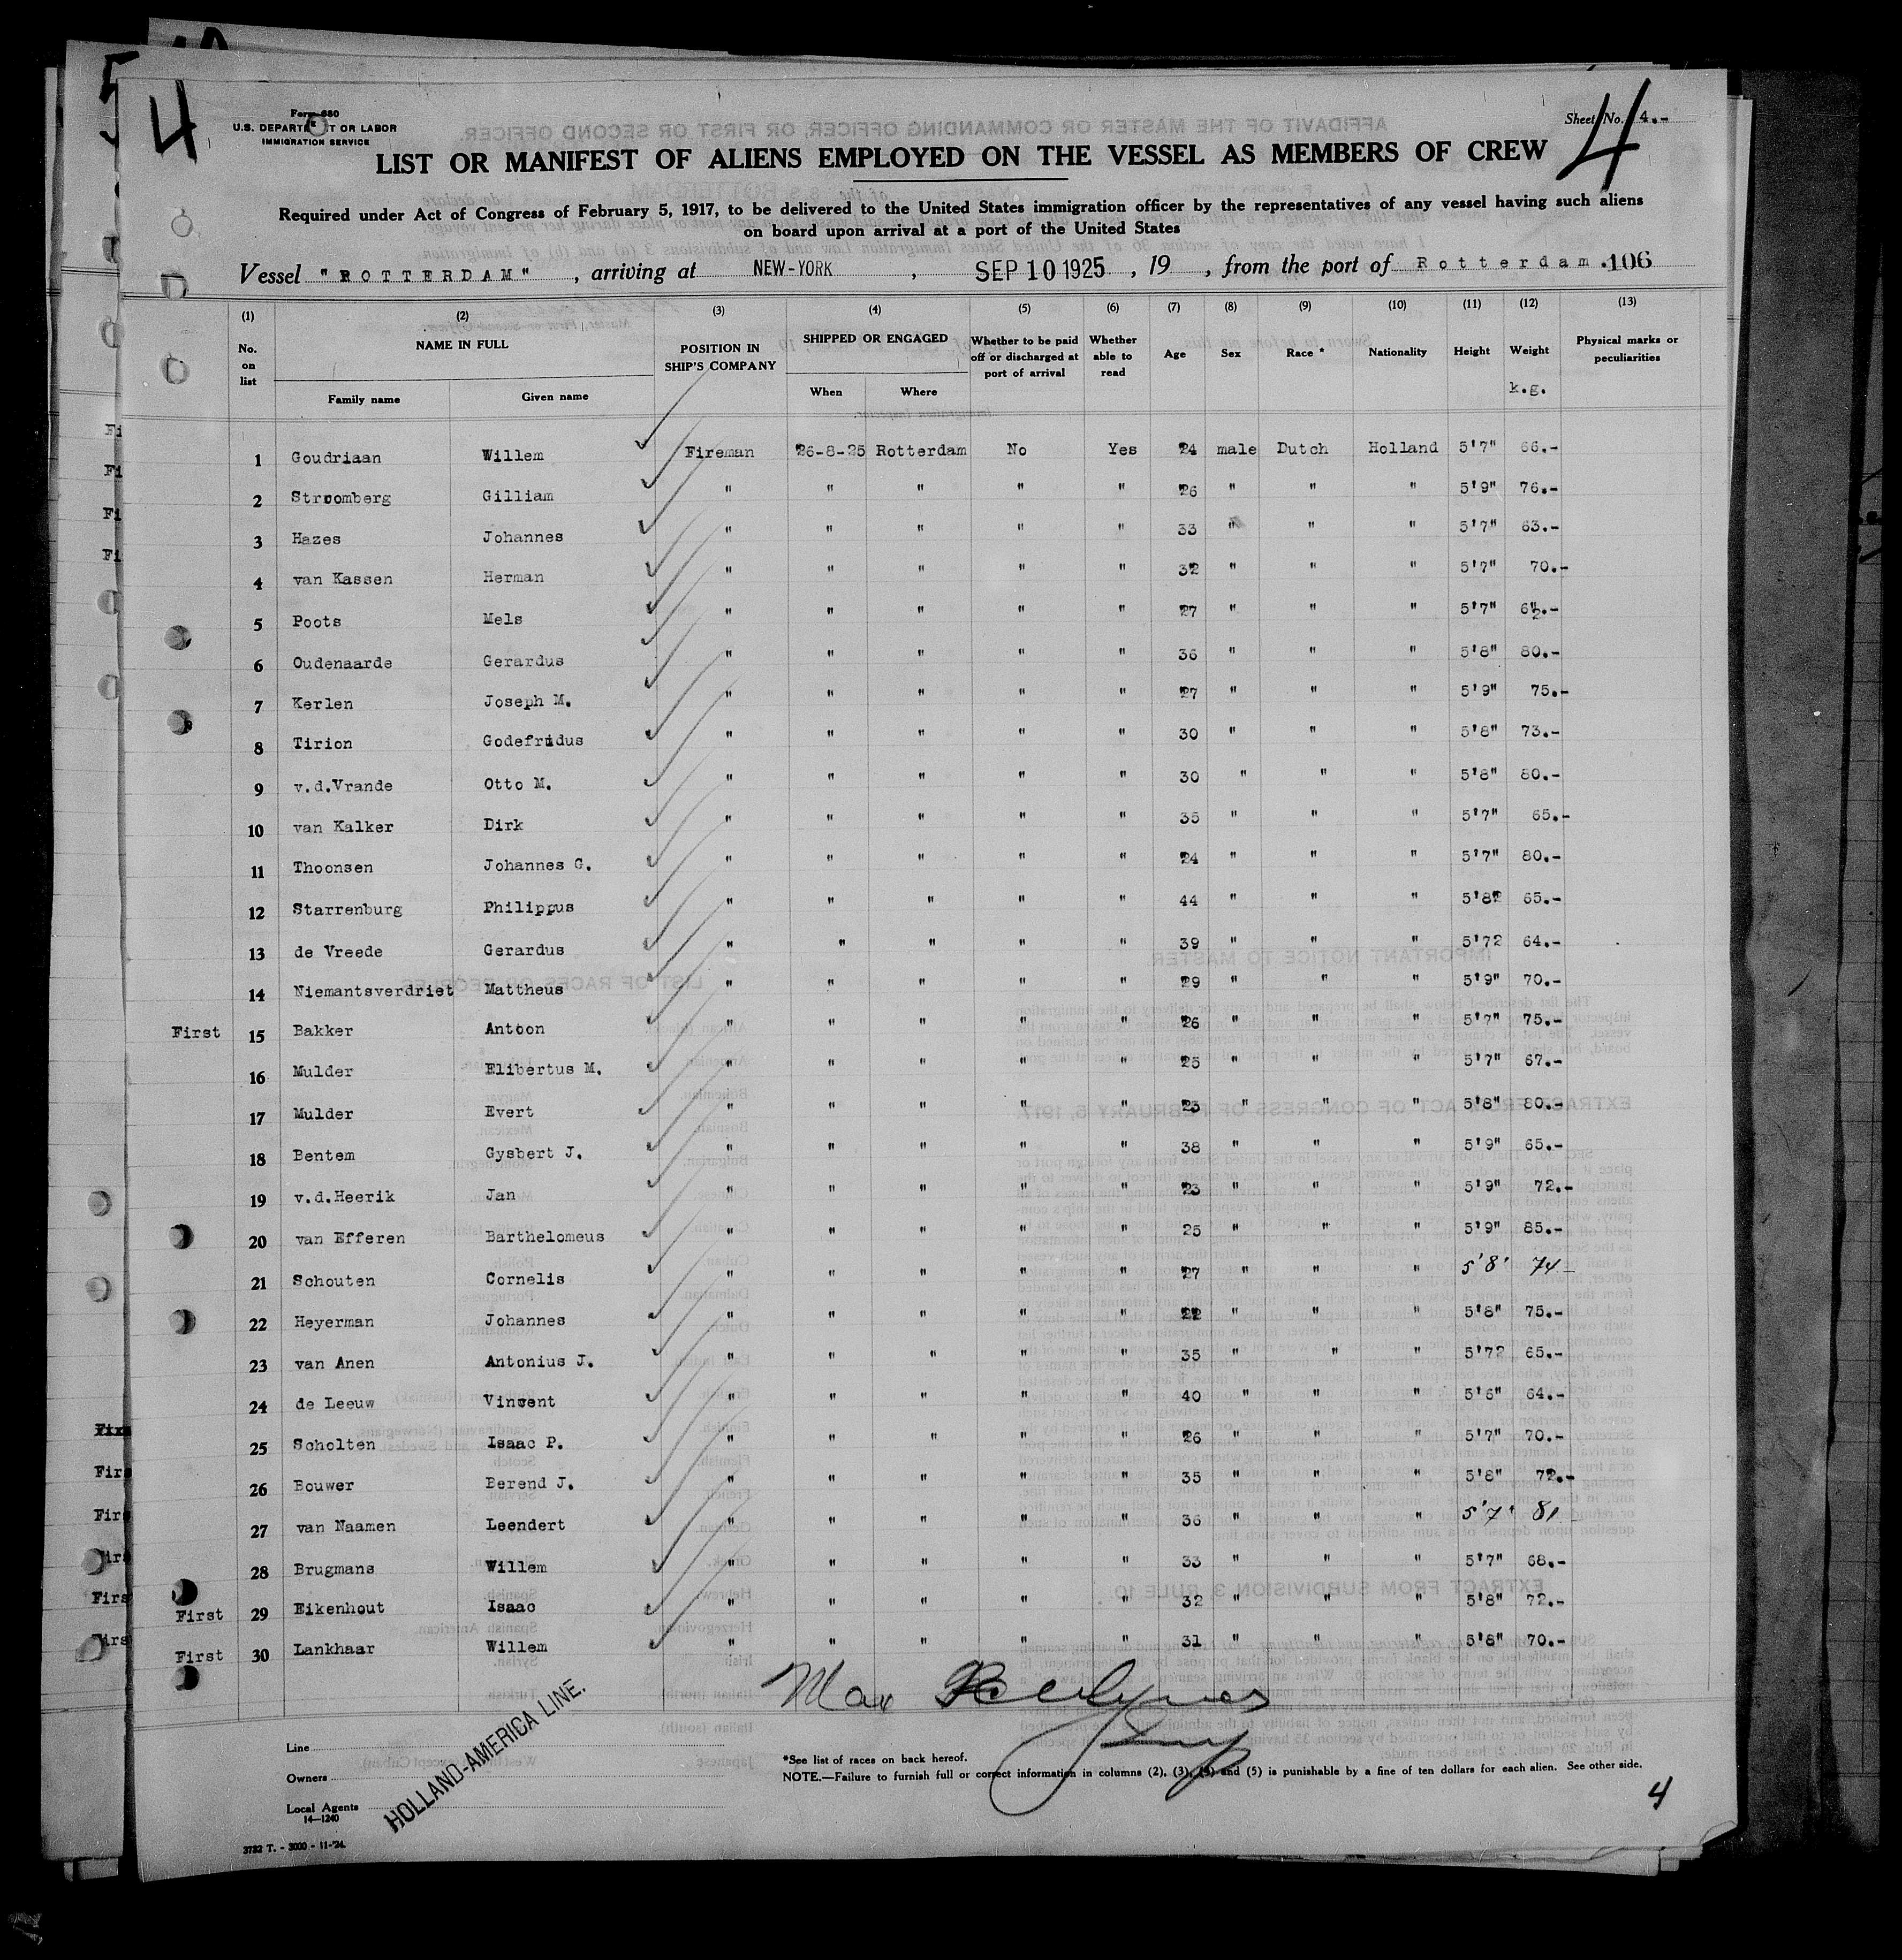 4
Form 680
U.S. DEPARTMENT OR LABOR
IMMIGRATION SERVICE
Sheet No. 4.-
4
LIST OR MANIFEST OF ALIENS EMPLOYED ON THE VESSEL AS MEMBERS OF CREW
Required under Act of Congress of February 5, 1917, to be delivered to the United States immigration officer by the representatives of any vessel having such aliens
on board upon arrival at a port of the United States
Vessel "ROTTERDAM", arriving at NEW-YORK, SEP 10 1925, 19 , from the port of Rotterdam. 106
(1) (2) (3) (4) (5) (6) (7) (8) (9) (10) (11) (12) (13)
No. on list NAME IN FULL Family name Given name POSITION IN SHIP'S COMPANY SHIPPED OR ENGAGED When Where Whether to be paid off or discharged at port of arrival Whether able to read Age Sex Race * Nationality Height Weight k.g. Physical marks or peculiarities
1 Goudriaan Willem Fireman 26-8-25 Rotterdam No Yes 24 male Dutch Holland 5'7" 66.-
2 Stroomberg Gilliam " " " " " 26 " " " 5'9" 76.-
3 Hazes Johannes " " " " " 33 " " " 5'7" 63.-
4 van Kassen Herman " " " " " 32 " " " 5'7" 70.-
5 Poots Mels " " " " " 27 " " " 5'7" .-
6 Oudenaarde Gerardus " " " " " 36 " " " 5'8" 80.-
7 Kerlen Joseph M. " " " " " 27 " " " 5'9" 75.-
8 Tirion Godefridus " " " " " 30 " " " 5'8" 73.-
9 v.d.Vrande Otto M. " " " " " 30 " " " 5'8" 80.-
10 van Kalker Dirk " " " " " 35 " " " 5'7" 65.-
11 Thoonsen Johannes G. " " " " " 24 " " " 5'7" 80.-
12 Starrenburg Philippus " " " " " 44 " " " 5'82 65.-
13 de Vreede Gerardus " " " " " 39 " " " 5'72 64.-
14 Niemantsverdriet Mattheus " " " " " 29 " " " 5'9" 70.-
First 15 Bakker Antoon " " " " " 26 " " " 5'7" 75.-
16 Mulder Elibertus M. " " " " " 25 " " " 5'7" 67.-
17 Mulder Evert " " " " " 23 " " " 5'8" 80.-
18 Bentem Gysbert J. " " " " " 38 " " " 5'9" 65.-
19 v.d.Heerik Jan " " " " " 23 " " " 5'9" 72.-
20 van Efferen Barthelomeus " " " " " 25 " " " 5'9" 85.-
21 Schouten Cornelis " " " " " 27 " " " 5'8' 74-
22 Heyerman Johannes " " " " " 22 " " " 5'8" 75.-
23 van Anen Antonius J. " " " " " 35 " " " 5'72 65.-
24 de Leeuw Vincent " " " " " 40 " " " 5'6" 64.-
25 Scholten Isaac P. " " " " " 26 " " " 5'7" 70.-
26 Bouwer Berend J. " " " " " 35 " " " 5'8" 72.-
27 van Naamen Leendert " " " " " 36 " " " 5'7' 81
28 Brugmans Willem " " " " " 33 " " " 5'7" 68.-
First 29 Eikenhout Isaac " " " " " 32 " " " 5'8" 72.-
First 30 Lankhaar Willem " " " " " 31 " " " 5'8" 70.-
Max
Line
Owners
Local Agents
14-1240
HOLLAND-AMERICA LINE.
*See list of races on back hereof.
NOTE.—Failure to furnish full or correct information in columns (2), (3), (4) and (5) is punishable by a fine of ten dollars for each alien. See other side.
4
3732 T. - 3000 - 11-'24.